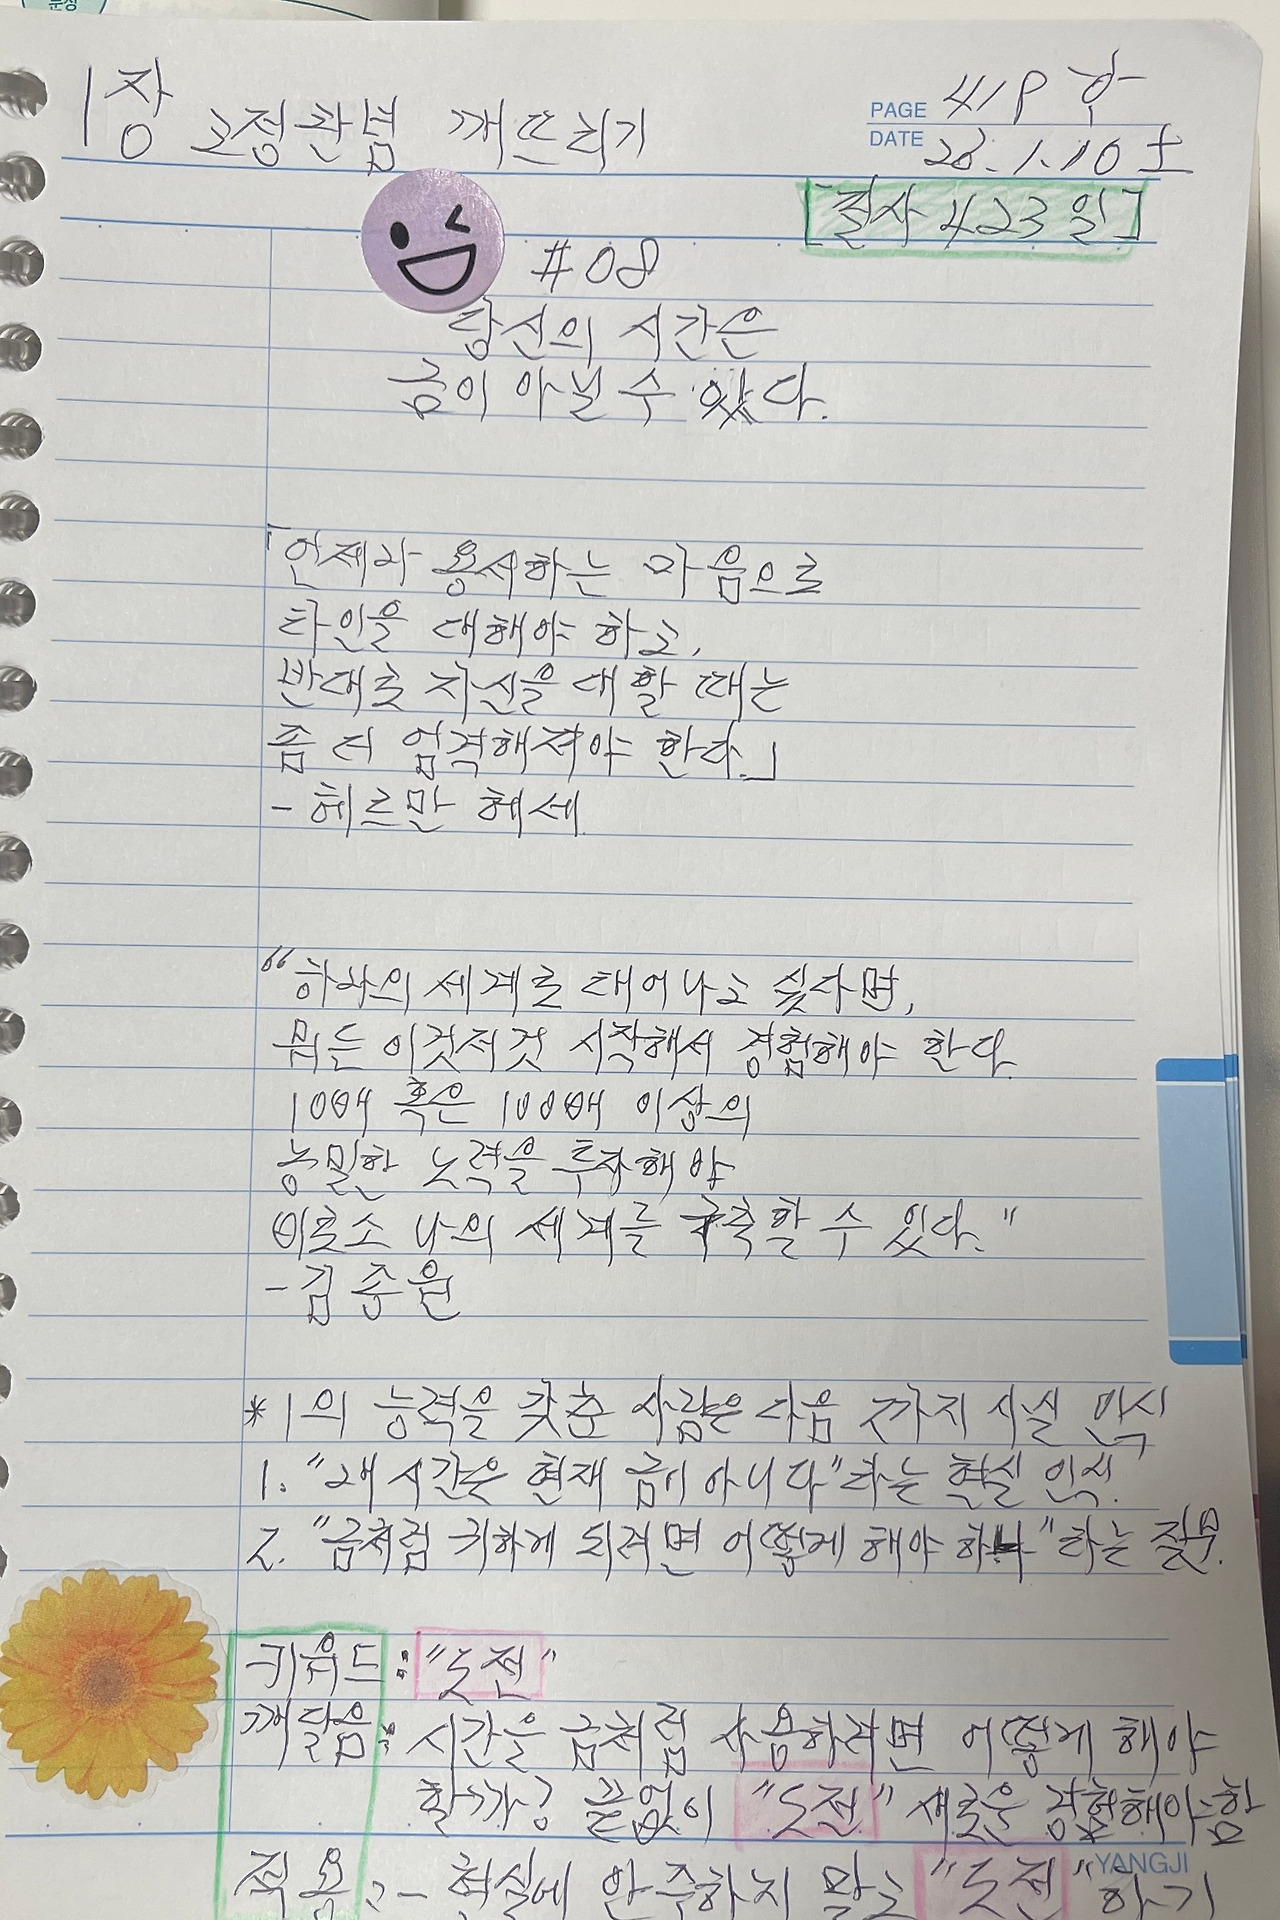 문장
1장 고정관념 깨뜨리기
PAGE 41P 하
DATE 26.1.10 토
「필사 423일」
#08
당신의 시간은
금이 아닐 수 있다.
「언제나 용서하는 마음으로
타인을 대해야 하고,
반대로 자신을 대할 때는
좀 더 엄격해져야 한다.」
- 헤르만 헤세
"하나의 세계로 태어나고 싶다면,
뭐든 이것저것 시작해서 경험해야 한다.
10배 혹은 100배 이상의
농밀한 노력을 투자해야
비로소 나의 세계를 구축할 수 있다."
- 김종원
* 1의 능력을 갖춘 사람은 다음 2가지 사실 인식
1. "내 시간은 현재 금이 아니다"라는 현실 인식.
2. "금처럼 귀하게 되려면 어떻게 해야 하나"라는 질문.
키워드 : "도전"
깨달음 : 시간을 금처럼 사용하려면 어떻게 해야
할까? 끝없이 "도전" 새로운 경험해야함
YANGJI
적용 : - 현실에 안주하지 말고 "도전"하기